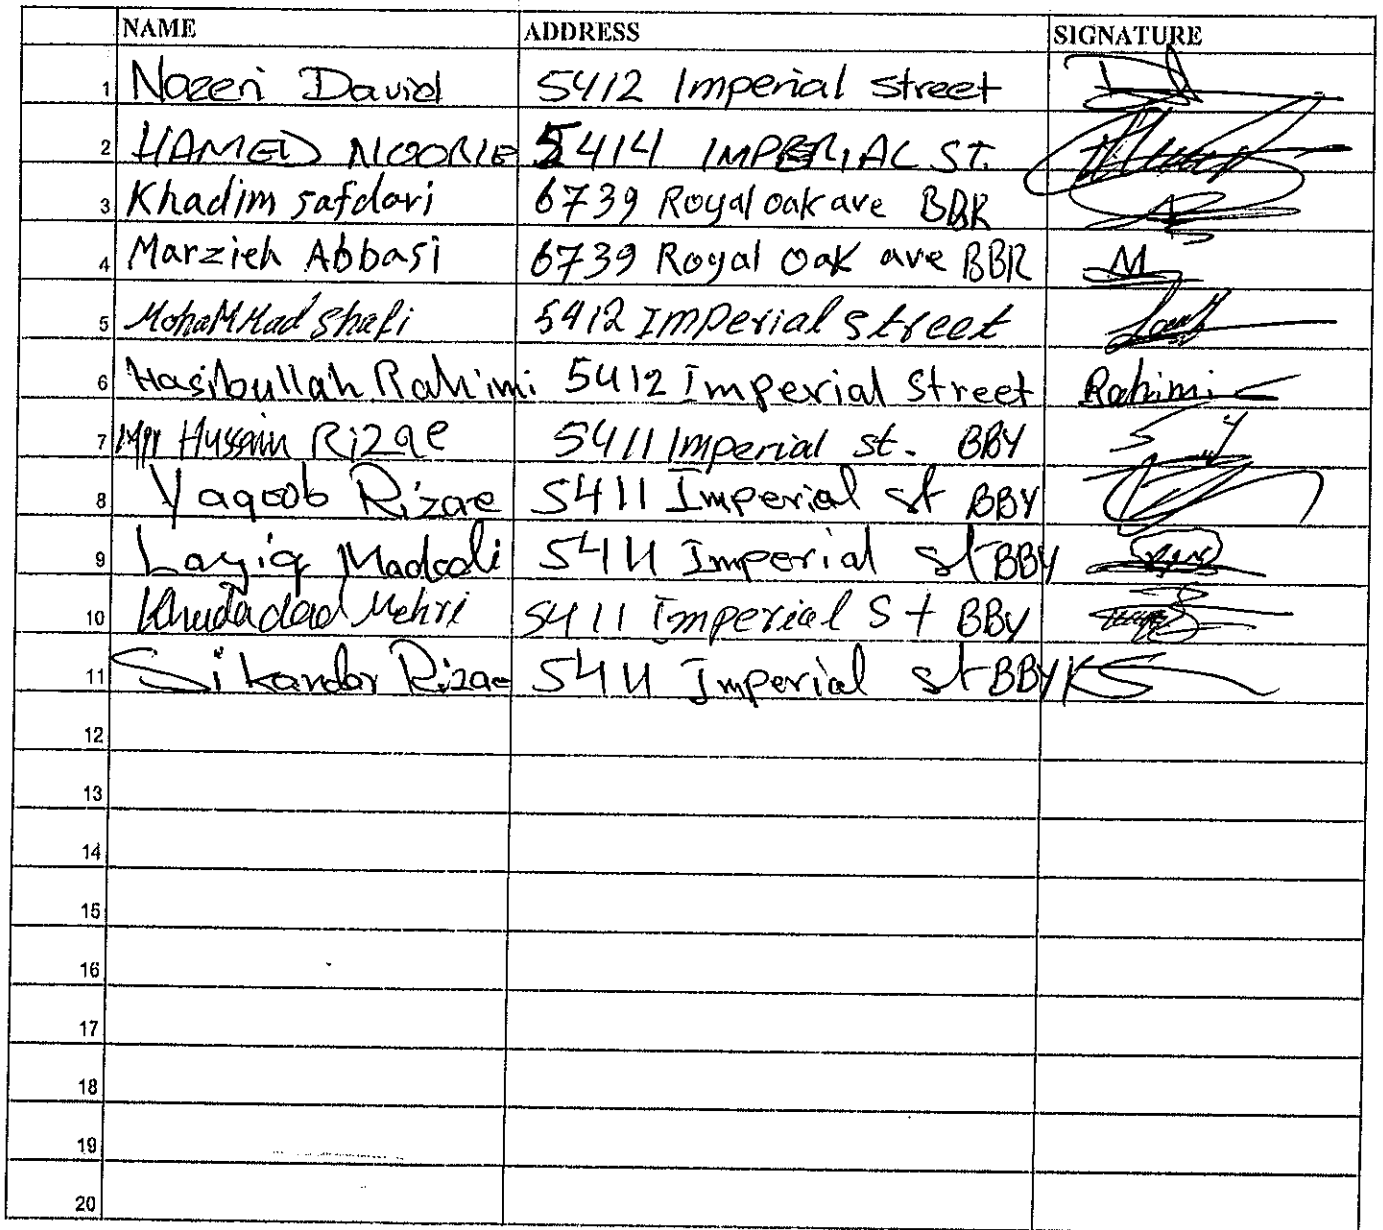 NAME ADDRESS SIGNATURE
1 Nazeri David 5412 Imperial street
2 HAMED NOORIE 5414 IMPERIAL ST.
3 Khadim safdari 6739 Royal oak ave BBR
4 Marzieh Abbasi 6739 Royal Oak ave BBR M
5 MohaMMad Shafi 5412 Imperial street
6 Hasibullah Rahimi 5412 Imperial Street Rahimi
7 Hussain Rizae 5411 Imperial st. BBY
8 Yaqoob Rizae 5411 Imperial st BBY
9 Layiq Madadi 5411 Imperial st BBY
10 Khudadad Mehri 5411 Imperial St BBY
11 Sikandar Rizae 5411 Imperial st BBY KS
12
13
14
15
16
17
18
19
20